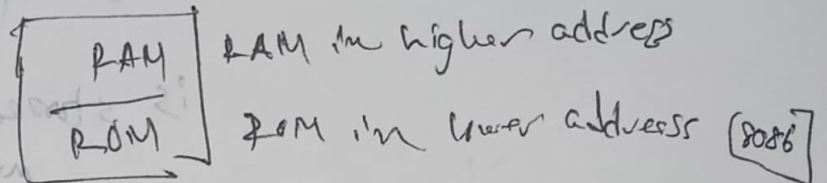 RAM RAM in higher address
ROM ROM in lower address [8086]